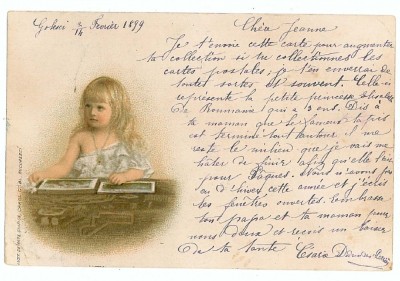 2/14 Fevrier 1899
Chèa Jeanne
Je t'envoie cette carte pour augmenter
ta collection si tu collectionnes les
cartes postales, je t'en enverrai de
toutes sortes et souvent. Celle-ci
représente la petite princesse
de Roumanie qui a ans. Dis à
ta maman que le fameux tapis
est terminé tout autour. il me
reste le milieu que je vais me
hâter de finir afin qu'elle l'aie
pour Pâques. Nous n'avons pas
eu d'hiver cette année et j'écris
les fenêtres ouvertes. Embrasse
ton papa et ta maman pour
nous deux et reçois un baiser
de ta tante